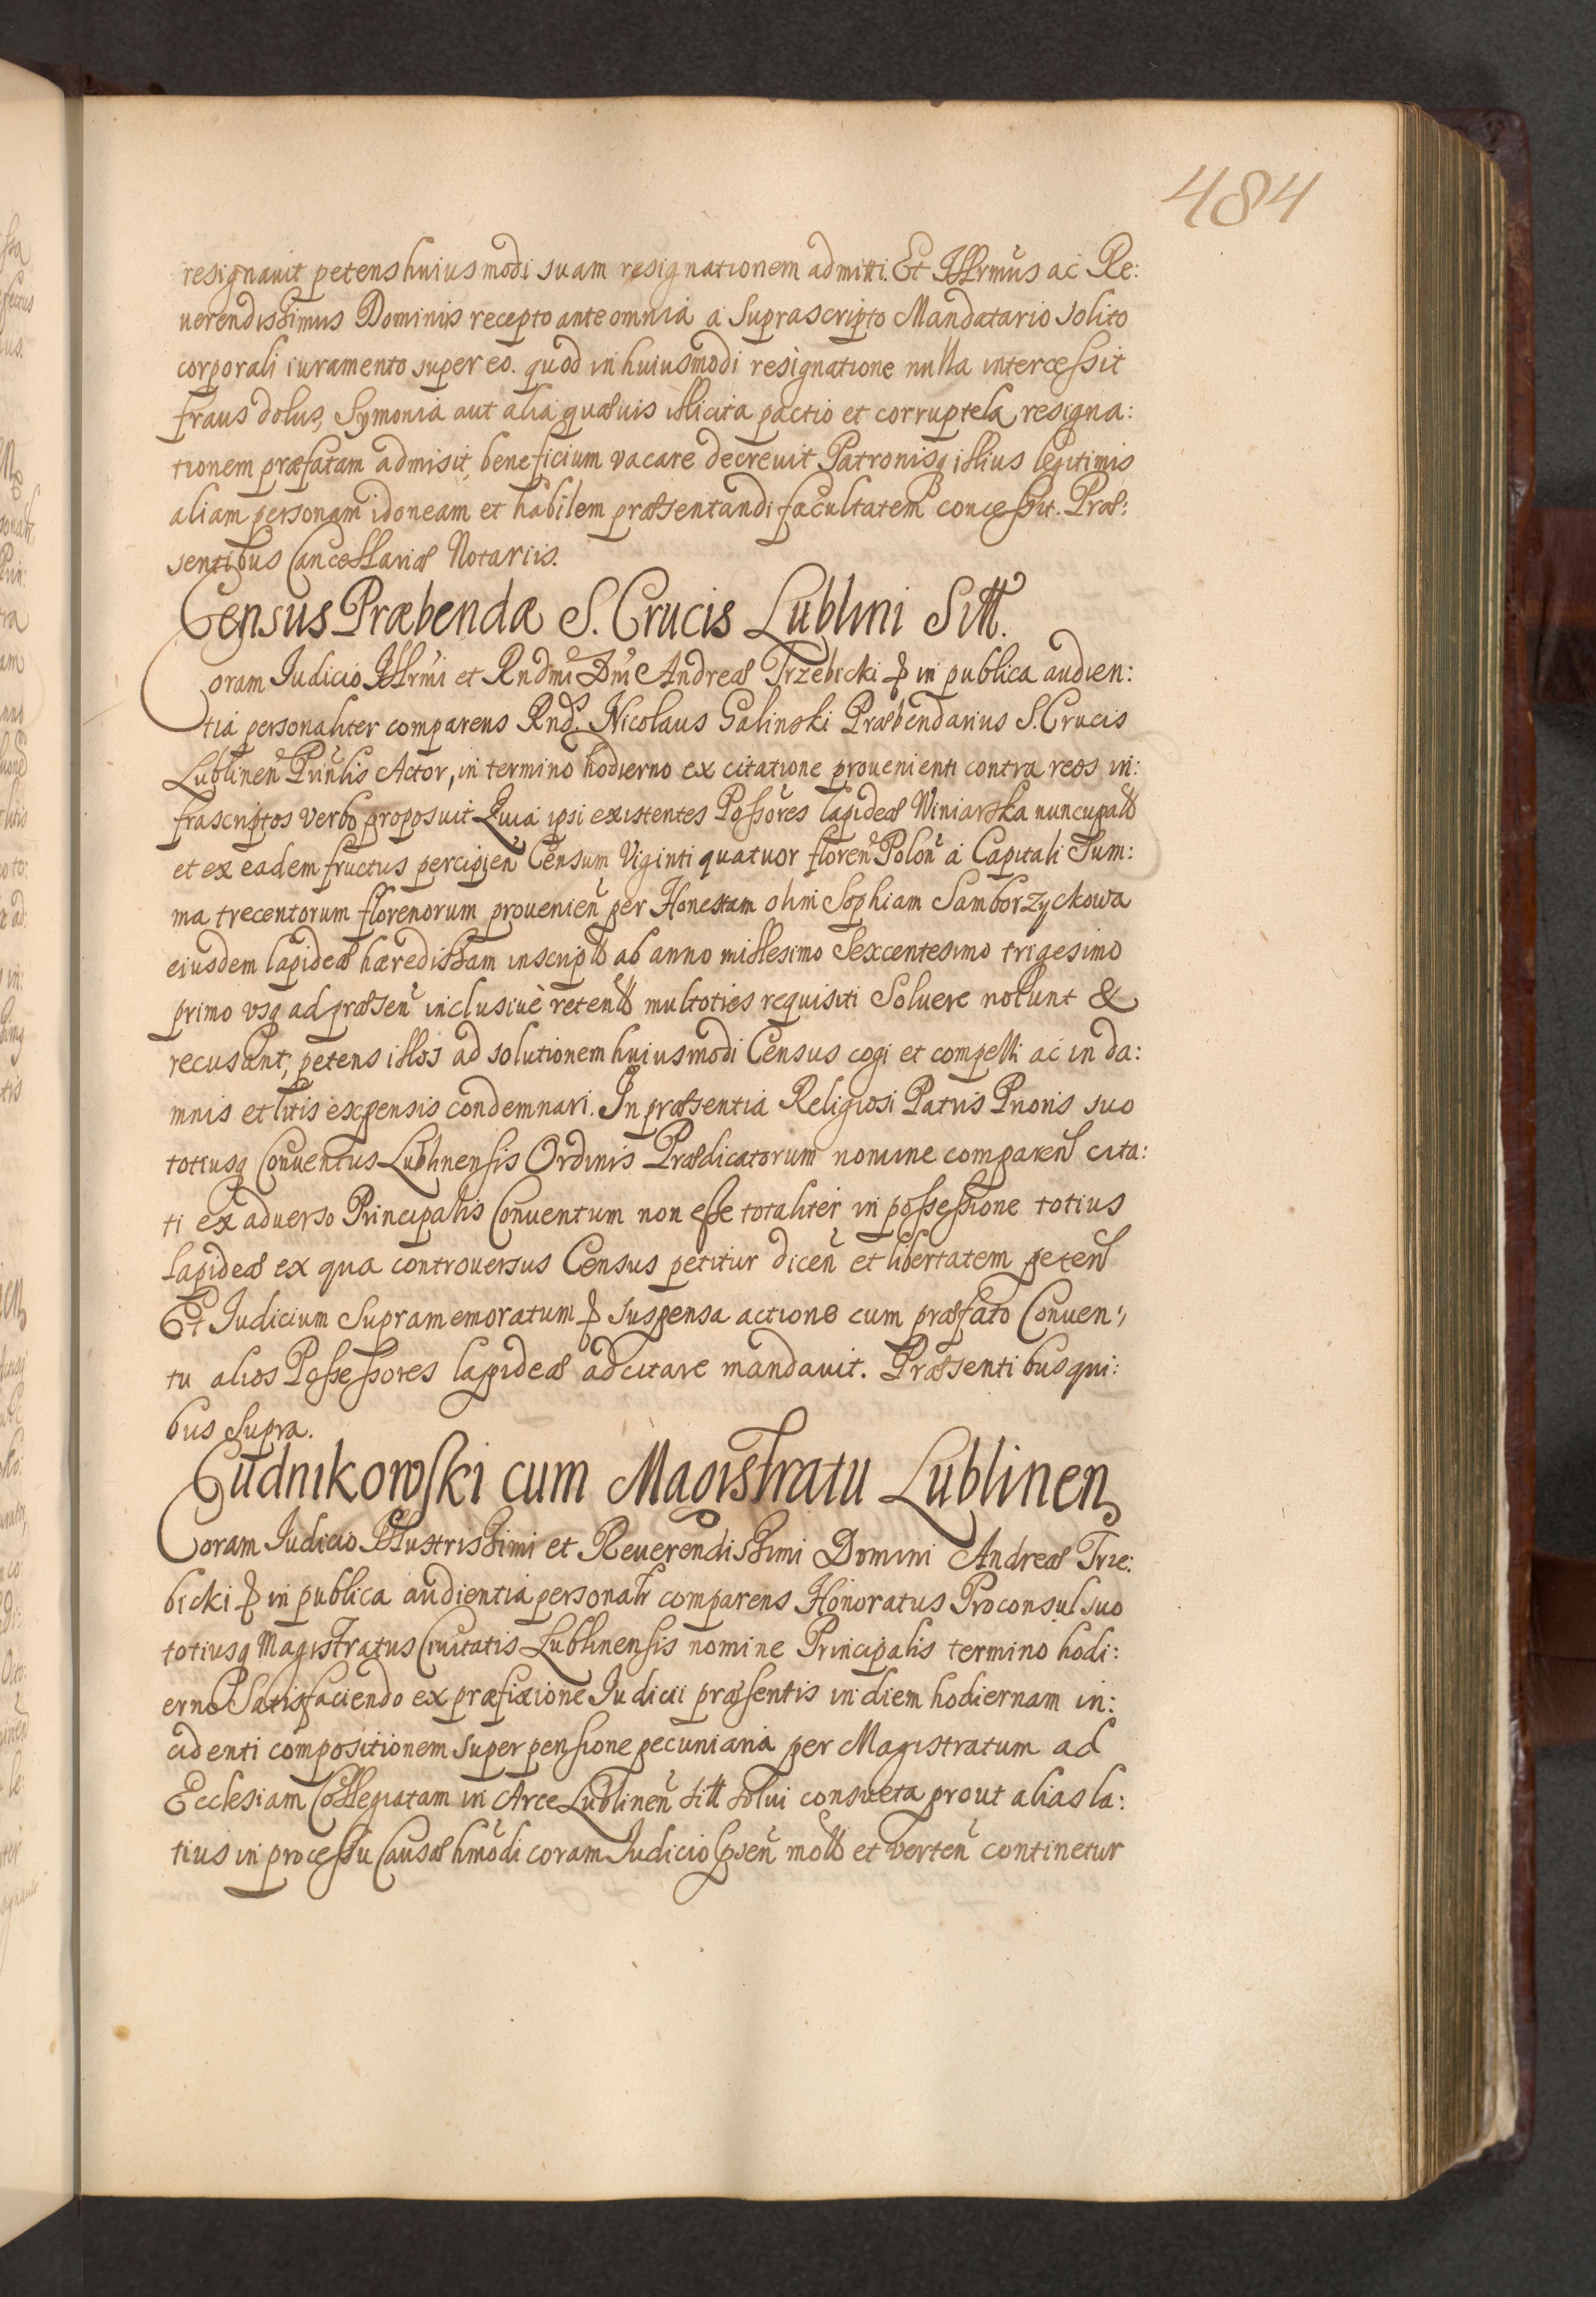 484
resignauit petens huiusmodi suam resignationem admitti. Et Illrmus ac Re:
uerendissimus Dominus recepto ante omnia a suprascripto Mandatario solito
corporali iuramento super eo. quod in huiusmodi resignatione nulla intercessit
fraus dolus, Symonia aut alia quæuis illicita pactio et corruptela, resigna:
tionem præfatam admisit, beneficium vacare decreuit Patronisq illius legitimis
aliam personam idoneam et habilem præsentandi facultatem concessit. Præ:
sentibus Cancellariæ Notariis.
Census Præbendæ S. Crucis Lublini Sitt.
Coram Iudicio Illrmi et Rndmi Dni Andreæ Trzebicki & in publica audien:
tia personaliter comparens Rnd. Nicolaus Galinski Præbendarius S. Crucis
Lublinen Prinlis Actor, in termino hodierno ex citatione prouenienti contra reos in:
frascriptos verbo proposuit Quia ipsi existentes Possores lapideæ Winiarska nuncupatæ
et ex eadem fructus percipien Censum Viginti quatuor floren Polon a Capitali Sum:
ma trecentorum florenorum prouenien per Honestam olim Sophiam Samborzyckowa
eiusdem lapideæ hæredissam inscript ab anno millesimo Sexcentesimo trigesimo
primo vsq ad præsen inclusiuè retent multoties requisiti Soluere nolunt &
recusant; petens illos ad solutionem huiusmodi Census cogi et compelli ac in da:
mnis et litis expensis condemnari. In præsentia Religiosi Patris Prioris suo
totiusq Conuentus Lublinensis Ordinis Prædicatorum nomine comparen cita:
ti ex aduerso Principalis Conuentum non esse totaliter in possessione totius
lapideæ ex qua controuersus Census petitur dicen et libertatem peten
Et Iudicium Supramemoratum & suspensa actione cum præfato Conuen:
tu alios Possessores lapideæ adcitare mandauit. Præsentibus qui:
bus supra.
Cudnikowski cum Magistratu Lublinen
Coram Iudicio Illustrissimi et Reuerendissimi Domini Andreæ Trze:
bicki & in publica audientia personalr comparens Honoratus Proconsul suo
totiusq Magistratus Ciuitatis Lublinensis nomine Principalis termino hodi:
erno Satisfaciendo ex præfixione Iudicii præsentis in diem hodiernam in:
cidenti compositionem super pensione pecuniaria per Magistratum ad
Ecclesiam Collegiatam in Arce Lublinen sitt solui consueta prout alias la:
tius in processu Causæ hmodi coram Iudicio psen mot et verten continetur